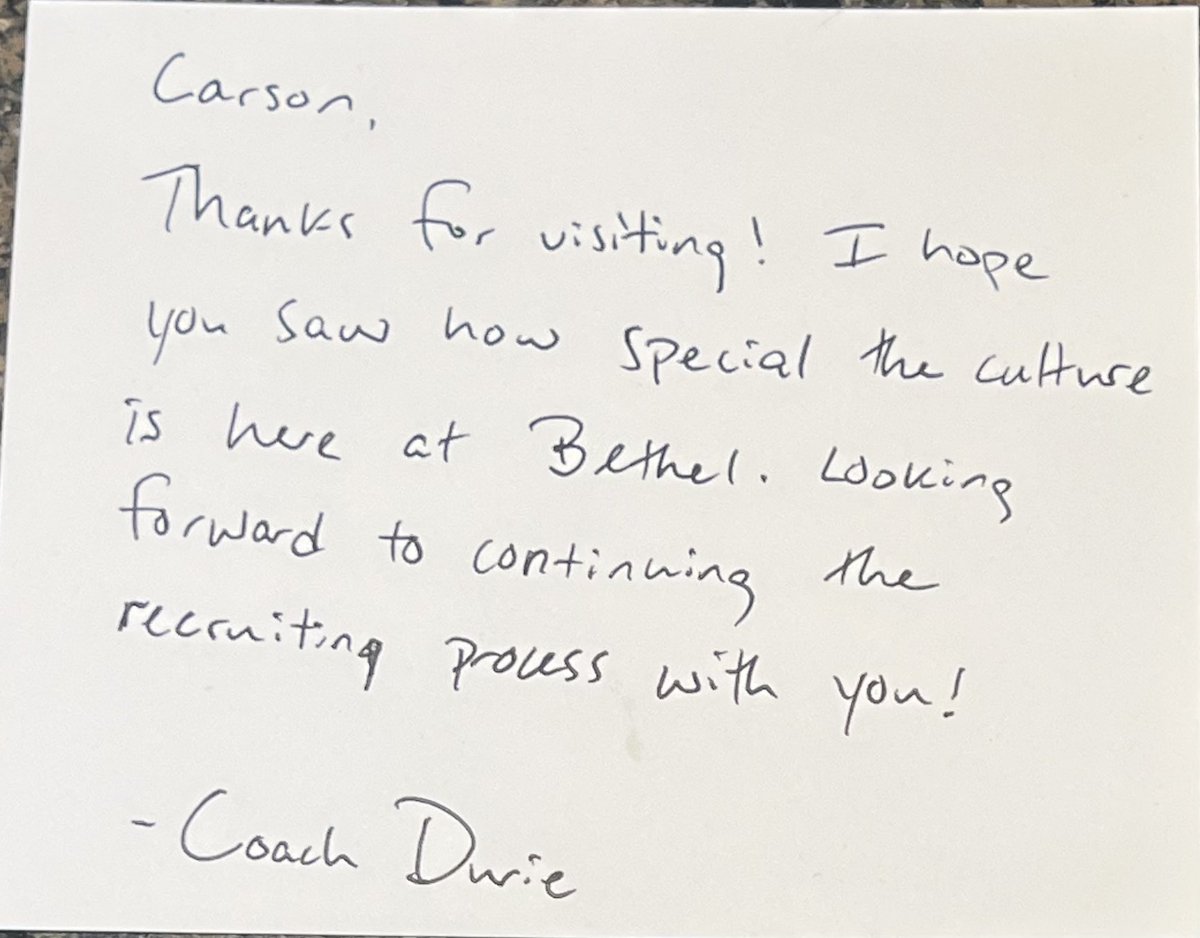 Carson,
Thanks for visiting! I hope
you saw how special the culture
is here at Bethel. Looking
forward to continuing the
recruiting process with you!
- Coach Durie